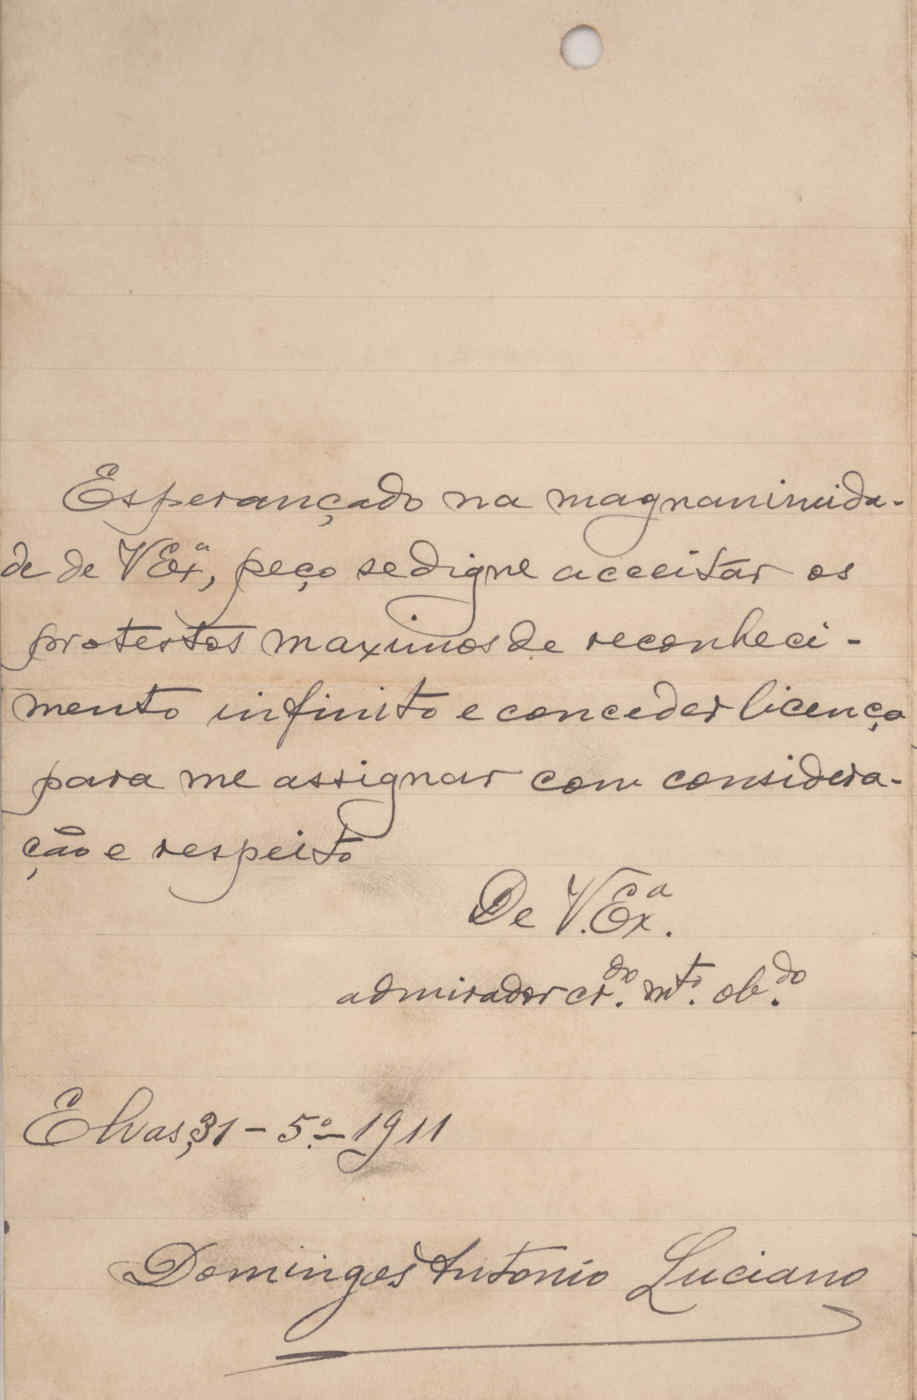 Esperançado na magnanimida-
de de V Exª, peço se digne acceitar os
protestos maximos de reconheci-
mento infinito e conceder licença
para me assignar com considera-
ção e respeito
De V. Exª.
admirador cr.do mt.o ob.do
Elvas, 31-5.º-1911
Domingos Antonio Luciano